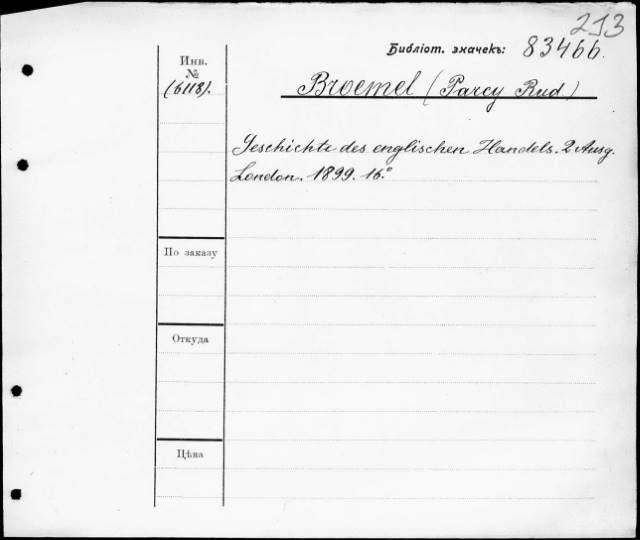 213
Библiот. значекъ: 83466.
Инв.
№
(6118).
Broemel (Parcy Rud.)
Geschichte des englischen Handels. 2 Ausg.
London. 1899. 16.°
По заказу
Откуда
Цѣна